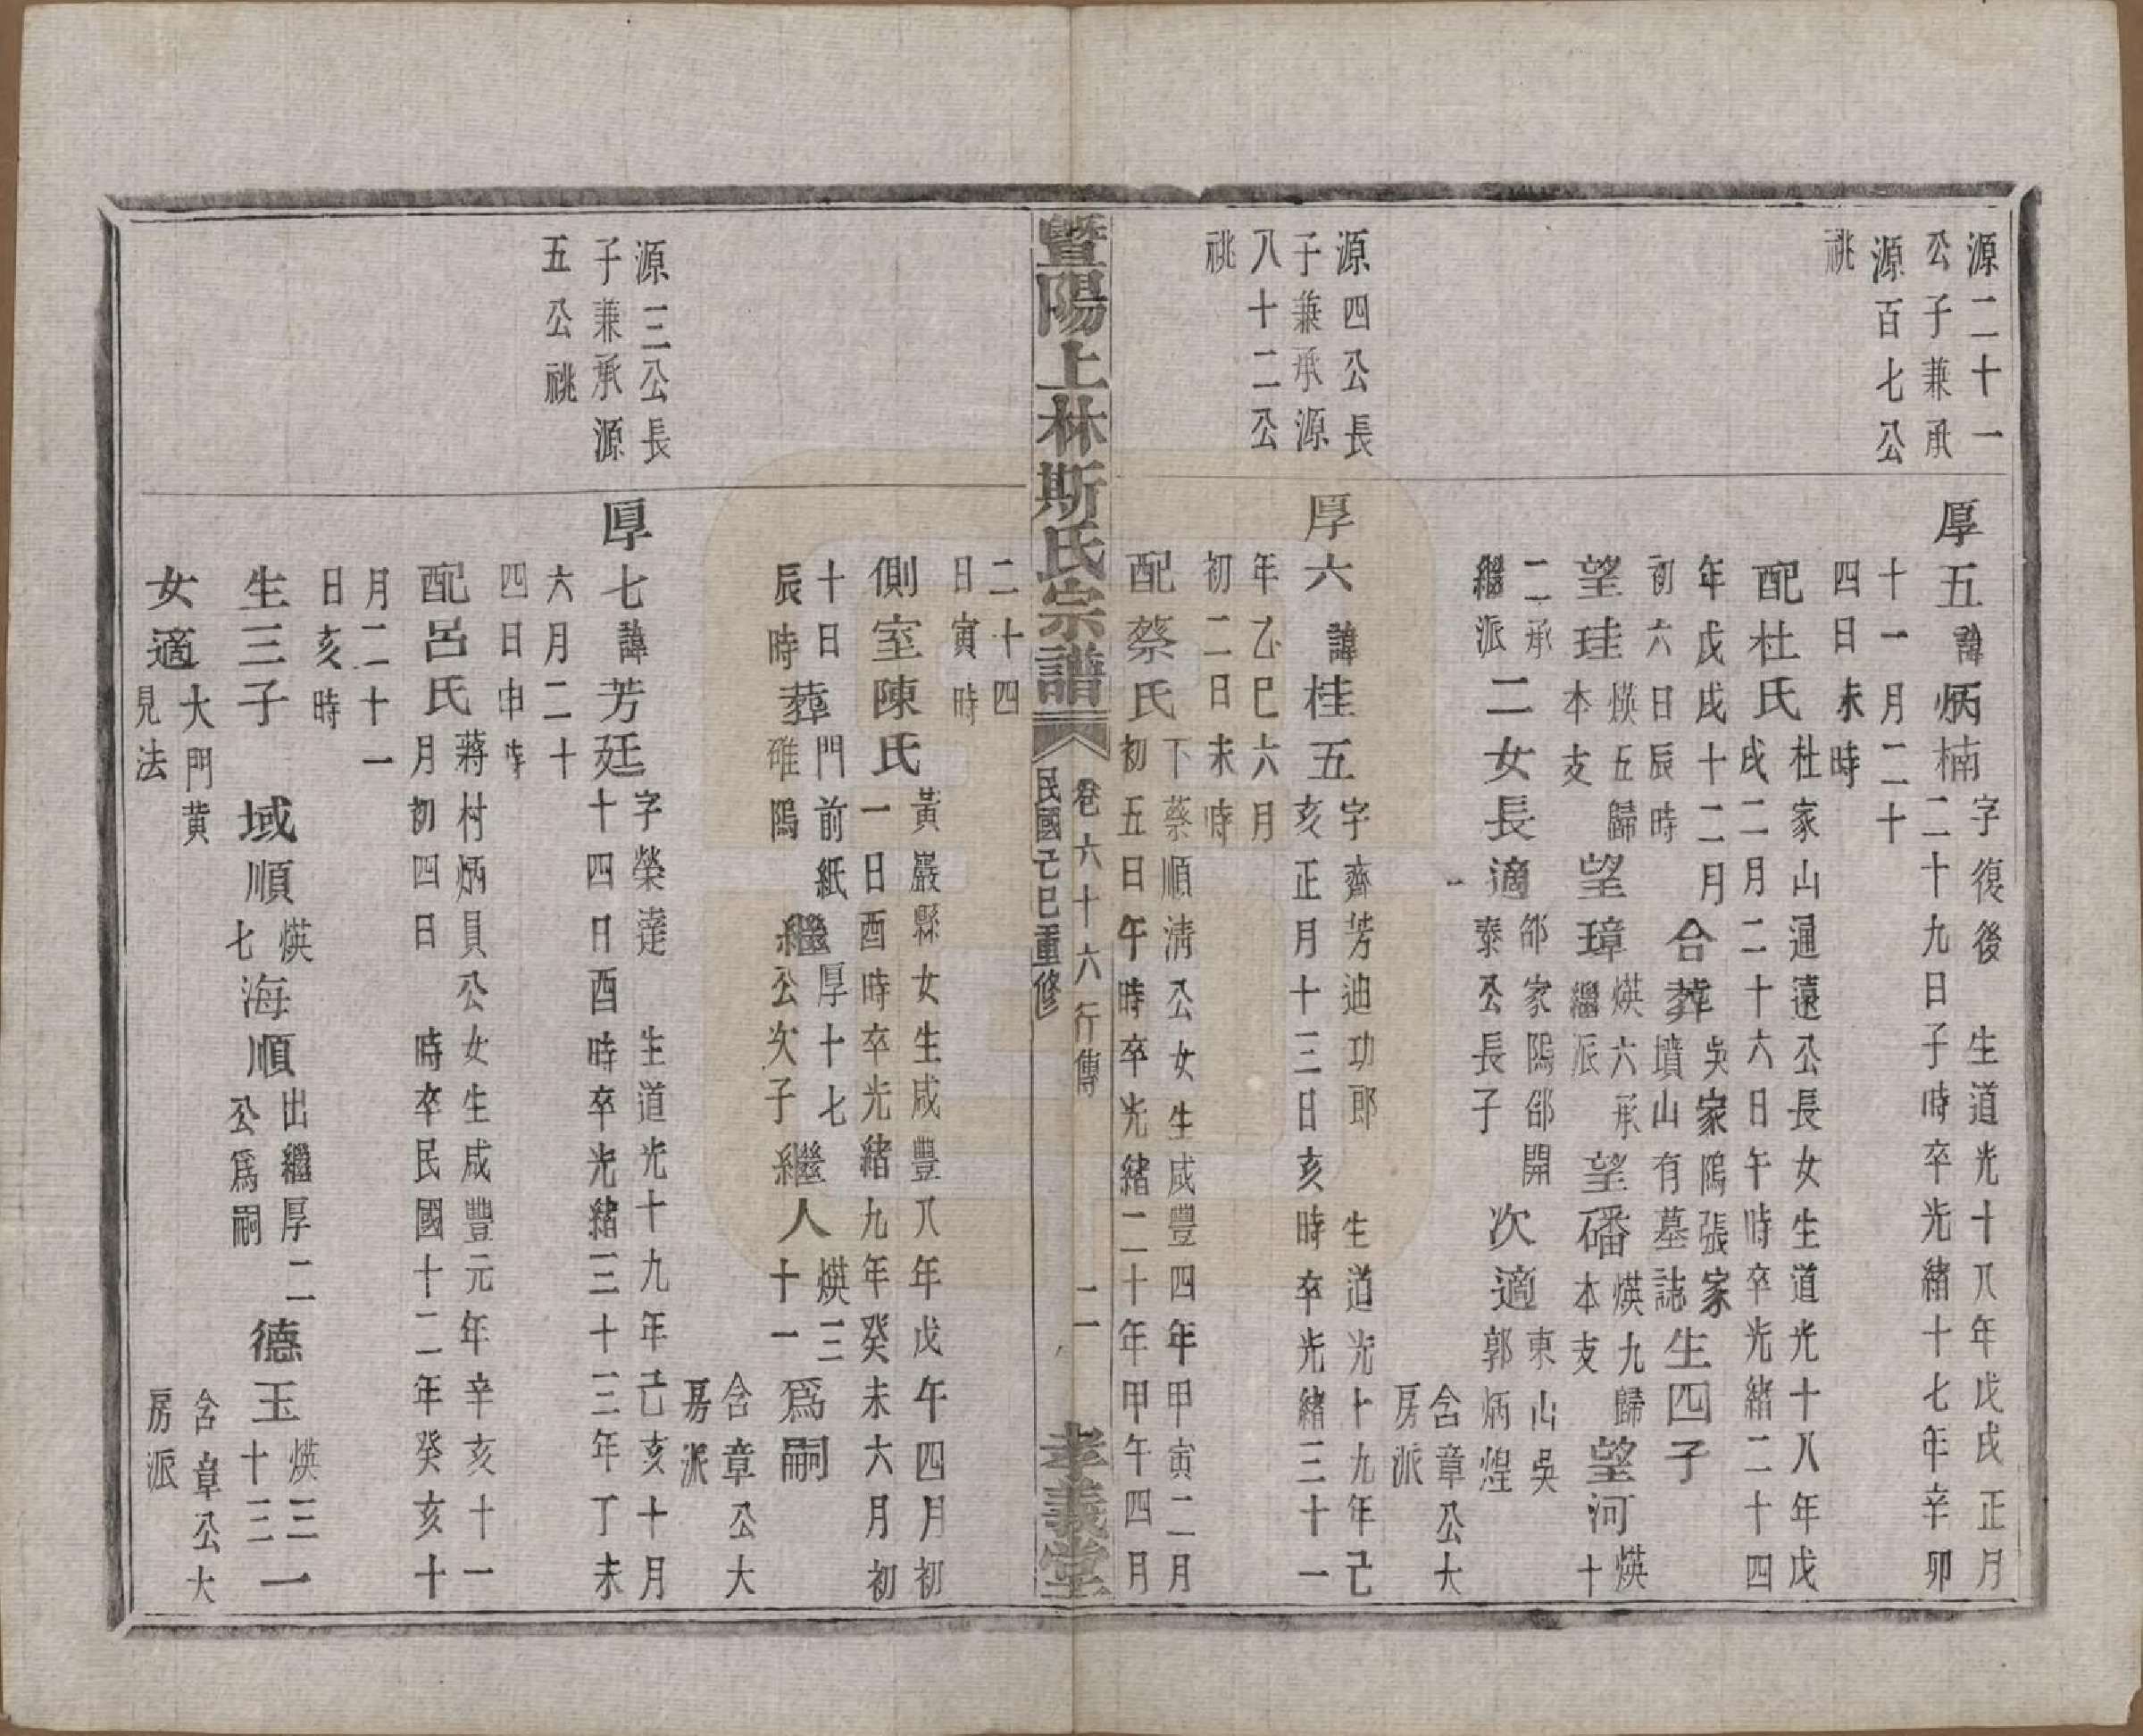 源二十一
公子兼承
源百七公
祧
厚五諱炳楠字復後 生道光十八年戊戌正月
二十九日子時卒光緒十七年辛卯
十一月二十
四日未時
配杜氏杜家山通遠公長女生道光十八年戊
戌二月二十六日午時卒光緒二十四
年戊戌十二月
初六日辰時
合葬吳家隖張家
墳山有墓誌
生四子
望珪煐五歸
本支
望璋煐六承
繼派
望磻煐九歸
本支
望河煐十
二承
繼派
二女長適邰家隖邰開
泰公長子
次適東山吳
郭炳煌
含章公大
房派
源四公長
子兼承源
八十二公
祧
厚六諱桂五字齊芳迪功郎 生道光十九年己
亥正月十三日亥時卒光緒三十一
年乙巳六月
初二日未時
配蔡氏下蔡順清公女生咸豐四年甲寅二月
初五日午時卒光緒二十年甲午四月
二十四
日寅時
側室陳氏黃巖縣女生咸豐八年戊午四月初
一日酉時卒光緒九年癸未六月初
十日
辰時
葬門前紙
碓隖
繼厚十七
公次子
繼人煐三
十一
為嗣
含章公大
房派
源三公長
子兼承源
五公祧
厚七諱芳廷字榮達 生道光十九年己亥十月
十四日酉時卒光緒三十三年丁未
六月二十
四日申時
配呂氏蔣村炳員公女生咸豐元年辛亥十一
月初四日 時卒民國十二年癸亥十
月二十一
日亥時
生三子 域順煐
七
海順出繼厚二
公為嗣
德玉煐三一
十三
女適大門黃
見法
含章公大
房派
暨陽上林斯氏宗譜
卷六十六 行傳 二
民國己巳重修
孝義堂